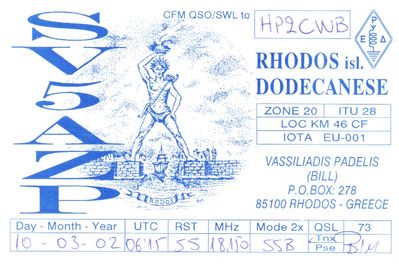 CFM QSO/SWL to HP2CWB
SV5AZP
RHODOS isl.
DODECANESE
ZONE 20 ITU 28
LOC KM 46 CF
IOTA EU-001
VASSILIADIS PADELIS
(BILL)
P.O.BOX: 278
85100 RHODOS - GREECE
RHODOS
Day - Month - Year UTC RST MHz Mode 2x QSL 73
10 - 03 - 02 0615 55 18,150 SSB Tnx
Pse